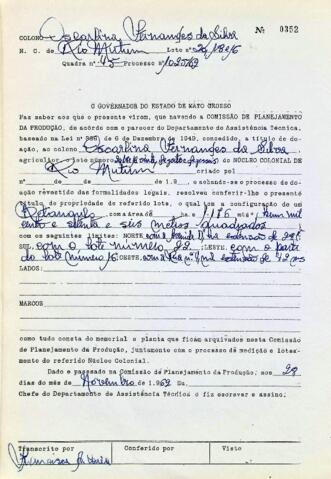 Nº 0352
COLONO Oscarlina Fernandes da Silva
N. C. de Rio Mutum Lote nº 20
Quadra nº 45 Processo nº
O GOVERNADOR DO ESTADO DE MATO GROSSO
Faz saber aos que o presente virem, que havendo a COMISSÃO DE PLANEJAMENTO
DA PRODUÇÃO, de acôrdo com o parecer do Departamento de Assistência Técnica,
baseada na Lei nº de 6 de Dezembro de 1949, concedido, a título de doa-
ção, ao colono Oscarlina Fernandes da Silva
agricultor, lote número do NÚCLEO COLONIAL DE
Rio Mutum criado por
nº de de de 1.9 , e achando-se o processo de do-
ação revestido das formalidades legais, resolveu conferir-lhe o presente
título de propriedade do referido lote, o qual tem a configuração de um
Retangulo com a área de hum mil
cento e setenta e seis metros quadrados
com os seguintes limites: NORTE, com a na extensão de
SUL, com o lote número 22; LESTE, com a parte
do lote número 16 OESTE, com a Rua nº extensão de 42 ms
LADOS:
MARCOS
como tudo consta do memorial e planta que ficam arquivados nesta Comissão
de Planejamento da Produção, juntamente com o processo de medição e lotea-
mento do referido Núcleo Colonial.
Dado e passado na Comissão de Planejamento da Produção, aos 29
dias do mês de Novembro de 1.962 Eu,
Chefe do Departamento de Assistência Técnica o fiz escrever e assino.
Transcrito por Conferido por Visto
Francisca